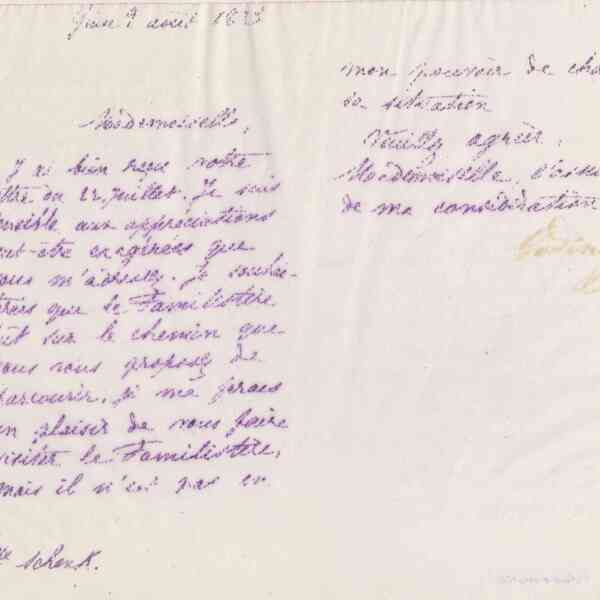 août 18
Mademoiselle,
J'ai bien reçu votre
ttre du 22 juillet. Je suis
ensible aux appréciations
eut-être exagérées que
ous m'adressez. Je souhai-
terais que le Familistère
fût sur le chemin que
vous vous proposez de
parcourir, je me ferais
un plaisir de vous faire
visiter le Familistère,
mais il n'est pas en
lle Schenk.
mon pouvoir de cha
sa situation
Veuillez agréer,
Mademoiselle, l'assu
de ma considération
Godin